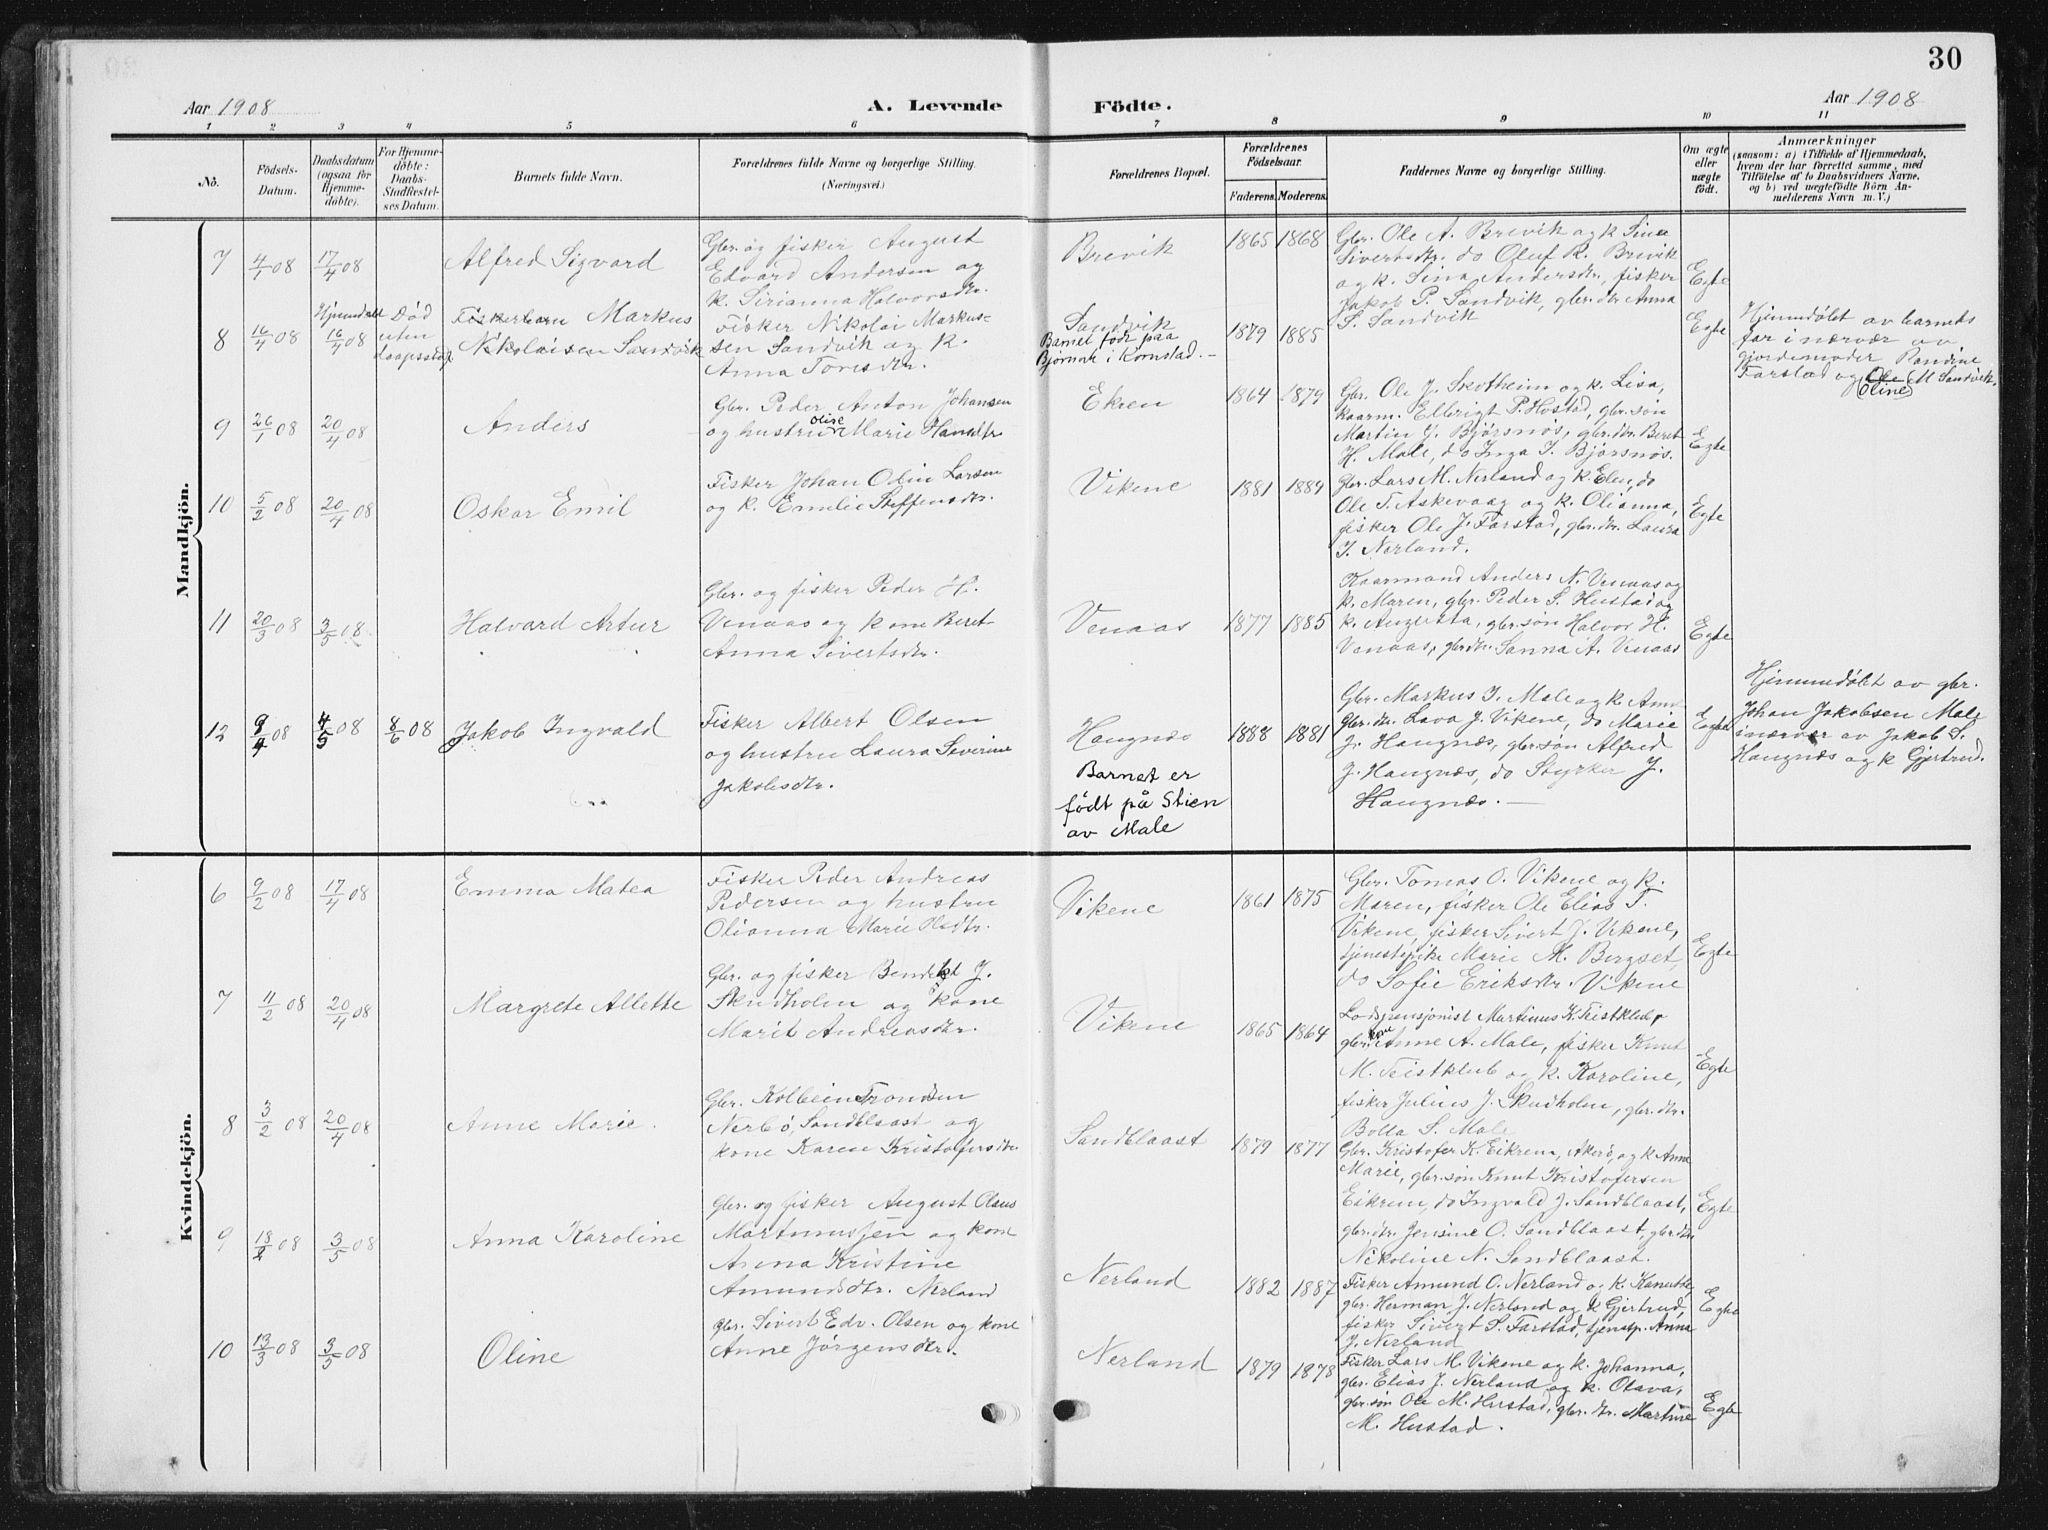 30
Aar 1908
A. Levende
Födte.
Aar 1908
1 2 3 4 5 6 7 8 9 10 11
No.
Födsels-
Datum.
Daabsdatum
(ogsaa for
Hjemme-
döbte).
For Hjemme-
döbte:
Daabs-
Stadfæstel-
ses Datum.
Barnets fulde Navn.
Forældrenes fulde Navne og borgerlige Stilling.
(Næringsvei.)
Forældrenes Bopæl.
Forældrenes
Födselsaar.
Faderens. Moderens.
Faddernes Navne og borgerlige Stilling.
Om ægte
eller
uægte
födt.
Anmærkninger
(saasom: a) i Tilfælde af Hjemmedaab,
hvem der har forrettet samme, med
Tilföielse af to Daabsvidners Navne,
og b) ved uægtefödte Börn An-
melderens Navn m. V.)
Mandkjön.
7 4/1 08 17/4 08 Alfred Sigvard
Gbr. og fisker August
Edvard Andersen og
k. Sirianna Halvorsdtr.
Brevik
1865 1868
Gbr. Ole A. Brevik og k Sina
Sivertsdtr. do Oluf R. Brevik
og k. Sina Andersdtr., fisker
Jakob P. Sandvik, gbr. dtr Anna
S. Sandvik
Egte
8 16/4 08 Hjemmdøbt 16/4 08
Død
uten
daapsstad
Fiskerbarn Markus
Nikolaisen Sandvik
Fisker Nikolai Markus-
sen Sandvik og k.
Anna Toresdtr.
Sandvik
Barnet født paa
Bjørnak i Kornstad. -
1879 1885
Egte
Hjemmedøbt av barnets
far i nærvær av
gjordemoder Randine
Farstad og Ole M Sandvik.
Oline
9 26/1 08 20/4 08 Anders
Gbr. Peder Anton Johansen
og hustru Oline Marie Hansdtr
Ekren
1864 1879
Gbr. Ole J. Skotheim og k. Lisa,
kaarm. Ellingt P. Hostad, gbr. søn
Martin J. Bjørsnøs, gbr. dtr. Beret
H. Male, do Inga J. Bjørsnøs.
Egte
10 5/2 08 20/4 08 Oskar Emil
Fisker Johan Odin Larsen
og k. Emilie Steffensdtr.
Vikene
1881 1884
Gbr. Lars M. Nerland og k. Elen, do
Ole T. Askevaag og k. Olianna,
fisker Ole J. Farstad, gbr. dtr. Laura
J. Nerland.
Egte
11 20/3 08 3/5 08 Halvard Artur
Gbr. og fisker Peder H.
Venaas og kone Beret
Anna Sivertsdtr.
Venaas
1877 1885
Kaarmand Anders N. Venaas og
k. Maren, gbr. Peder S. Hustad og
k. Augusta, gbr. søn Halvor H.
Venaas, gbr dtr. Sanna A. Venaas
Egte
12 9/4 08 4/5 08 8/6 08 Jakob Ingvald
Fisker Albert Olsen
og hustru Laura Severine
Jakobsdtr.
Haugnæs
Barnet er
født på Stien
av Male
1888 1881
Gbr. Markus J. Male og k. Anne
gbr. dtr. Lava J. Vikene, do Marie
J. Haugnæs, gbr. søn Alfred
J. Haugnæs, do Styrker J.
Haugnæs. —
Egte
Hjemmedøbt av gbr.
Johan Jakobsen Male
i nærvær av Jakob S.
Haugnæs og k Gjertrud.
Kvindekjön.
6 9/2 08 17/4 08 Emma Matea
Fisker Peder Andreas
Pedersen og hustru
Olianna Marie Olsdtr.
Vikene
1861 1875
Gbr. Tomas O. Vikene og k.
Maren, fisker Ole Elias T.
Vikene, fisker Sivert J. Vikene,
tjenestepike Marie M. Bergset,
do Sofie Eriksdtr. Vikene
Egte
7 11/2 08 20/4 08 Margrete Allette
Gbr. og fisker Bendikt J.
Skudholm og kone
Marit Andreasdtr.
Vikene
1865 1864
Lodspensjonist Martinus K. Teistklub,
gbr. kone Anne A. Male, fisker Knut
M. Teistklub og k. Karoline,
fisker Julius J. Skudholm, gbr. dtr.
Bolla S. Male
Egte
8 3/2 08 20/4 08 Anne Marie.
Gbr. Kolbein Trondsen
Nerbø, Sandblaast og
kone Karen Kristofersdtr
Sandblaast
1879 1877
Gbr. Kristofer K. Eikrem, Akerø, og k Anne
Marie, gbr. søn Knut Kristofersen
Eikrem, do Ingvald J. Sandblaast,
gbr. dtr. Jensine O. Sandblaast, gbr. dtr
Nikoline N. Sandblaast.
Egte
9 18/2 08 3/5 08 Anna Karoline
Gbr. og fisker August Olaus
Martinussen og kone
Anna Kristine
Amundsdtr. Nerland
Nerland
1882 1887
Fisker Amund O. Nerland og k.
gbr. Herman J. Nerland og k Gjertrud,
fisker Sivert S. Farstad, tjenstp. Anna
J. Nerland
Egte
10 13/3 08 3/5 08 Oline
Gbr. Sivert Edv. Olsen og kone
Anne Jørgensdtr.
Nerland
1879 1878
Fisker Lars M. Vikene og k. Johanna,
gbr. Elias J. Nerland og k. Olava,
gbr. søn Ole M. Hustad, gbr. dtr. Martine
M. Hustad.
Egte